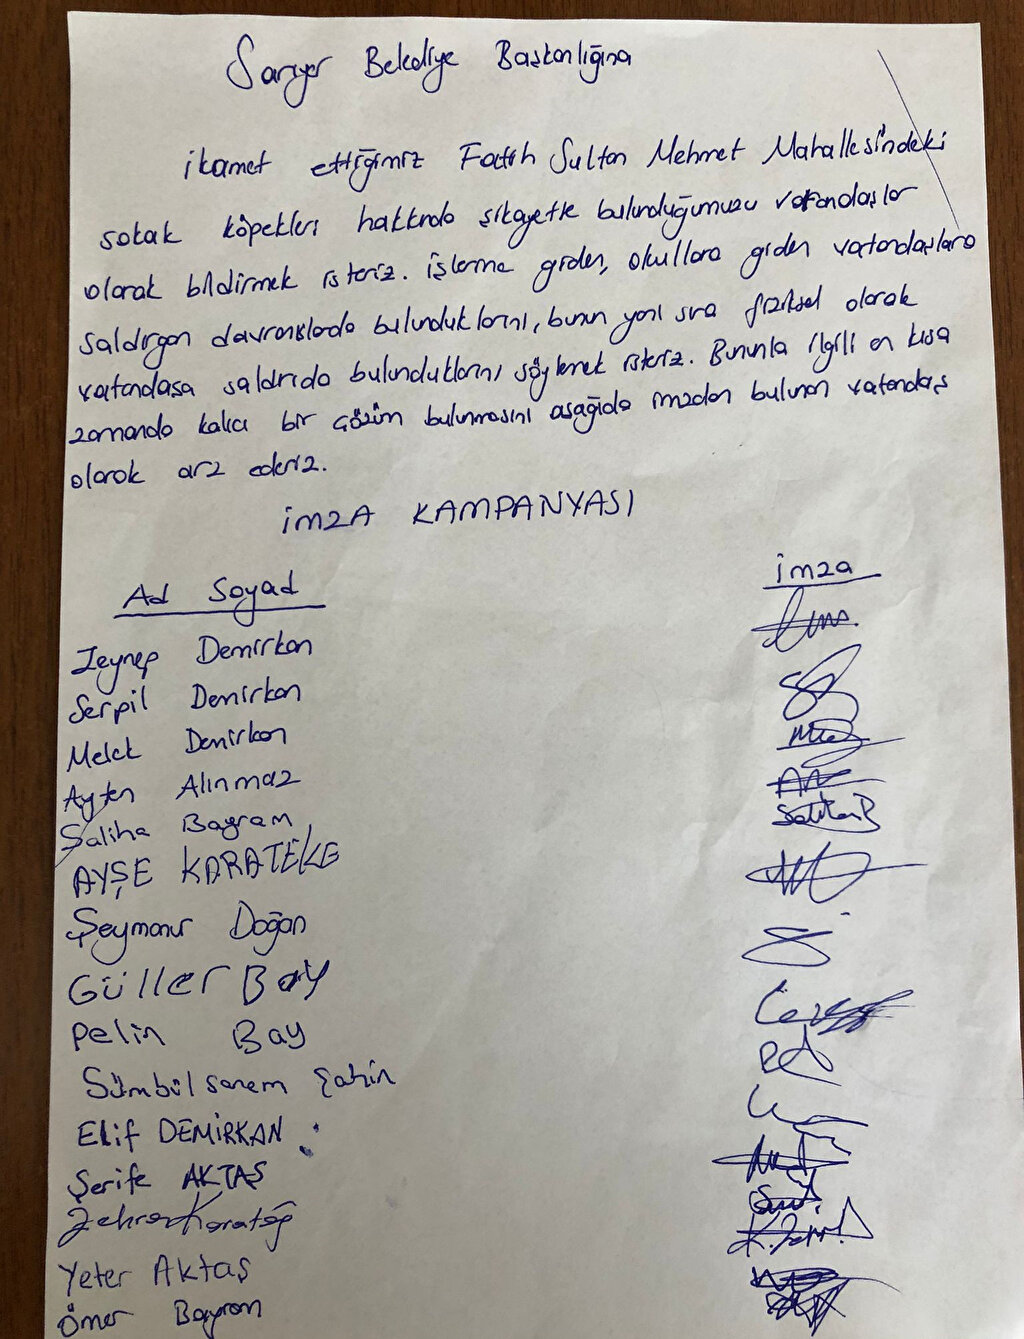 Sarıyer Belediye Başkanlığına
ikamet ettiğimiz Fatih Sultan Mehmet Mahallesindeki
sokak köpekleri hakkında şikayette bulunduğumuzu vatandaşlar
olarak bildirmek isteriz. işlerine giden, okullara giden vatandaşlara
saldırgan davranışlarda bulunduklarını, bunun yanı sıra fiziksel olarak
vatandaşa saldırıda bulunduklarını söylemek isteriz. Bununla ilgili en kısa
zamanda kalıcı bir çözüm bulunmasını aşağıda imzaları bulunan vatandaş
olarak arz ederiz.
imzA KAMPANYASI
Ad Soyad imza
Zeynep Demirkan
Serpil Demirkan
Melek Demirkan
Ayten Alınmaz
Saliha Bayram
AYŞE KARATEKE
Şeymanur Doğan
Güller Bay
Pelin Bay
Sümbül sanem Şahin
Elif DEMİRKAN
Şerife AKTAŞ
Zehra Karatağ
Yeter Aktaş
Ömer Bayram